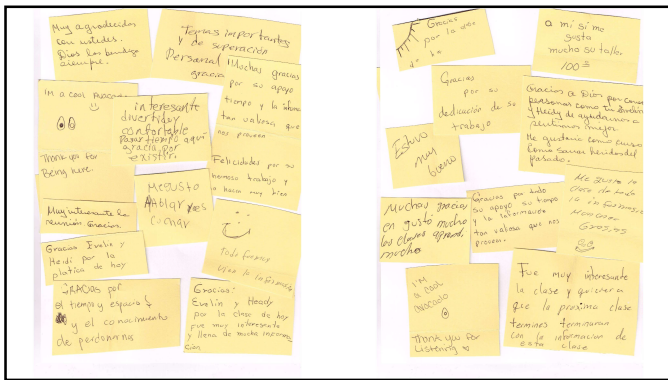 Muy agradecida
con ustedes.
Dios los bendiga
siempre.
Temas importantes
y de superación
Personal
gracia
Muchas gracias
por su apoyo
tiempo y la informa
tan valiosa que
nos proveen
Im a cool
interesante
divertido y
confortable
Pasar tiempo aquí
gracia por
existir.
Thank you for
Being here.
Felicidades por su
hermoso trabajo y
lo hacen muy bien
Me gusto
Ablar y es
cuchar
Muy interesante la
reunión Gracias.
Gracias Evelin y
Heidi por la
platica de hoy
Todo formoy
GRACIAS por
el tiempo y espacio
y el conocimiento
de perdonarnos
Gracias:
Evelin y Heady
por la clase de hoy
fue muy interesante
y llena de mucha informa
cion
Gracias
por la
a mi si me
gusta
mucho su talle.
100
Gracias
por su
dedicación de su
trabajo
Gracias a Dios por
personas como tu
y Heidy de ayudarnos a
sentirnos mejor.
Me gustaria como curso
Como sanar heridas del
pasado.
Estuvo
muy
bueno
Muchas gracias
en gusto mucho
las clases aprend.
mucho
Gracias por todo
su apoyo su tiempo
y la información
tan valiosa que nos
proveen.
Me gusto la
clase de todo
la informacion
Muchas
Gracias
I'M
a cool
avocado
Thank you for
Listening
Fue muy interesante
la clase y quisiera
que la proxima clase
termines terminaran
con la informacion de
esta clase